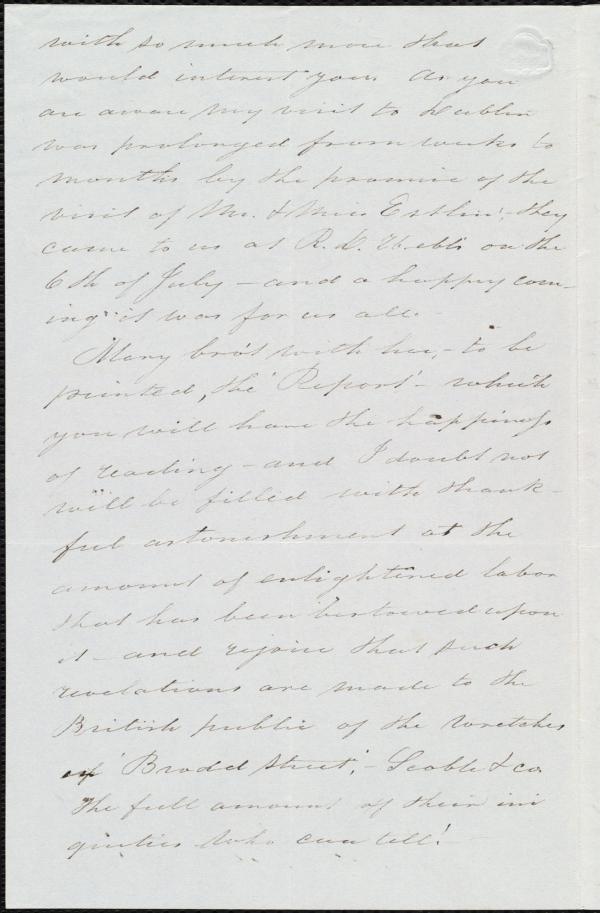 with so much more that
would interest you. As you
are aware my visit to Dublin
was prolonged from weeks to
months by the promise of the
visit of Mr. & Miss Estlin; they
came to us at R. D. Webb's on the
6th of July – and a happy com-
ing it was for us all.
Mary bro't with her, – to be
printed, the 'Report' – which
you will have the happiness
of reading – and I doubt not
will be filled with thank-
ful astonishment at the
amount of enlightened labor
that has been bestowed upon
it – and rejoice that such
revelations are made to the
British public of the wretches
of 'Broad Street', – Scoble & co
The full amount of their ini
quities who can tell!